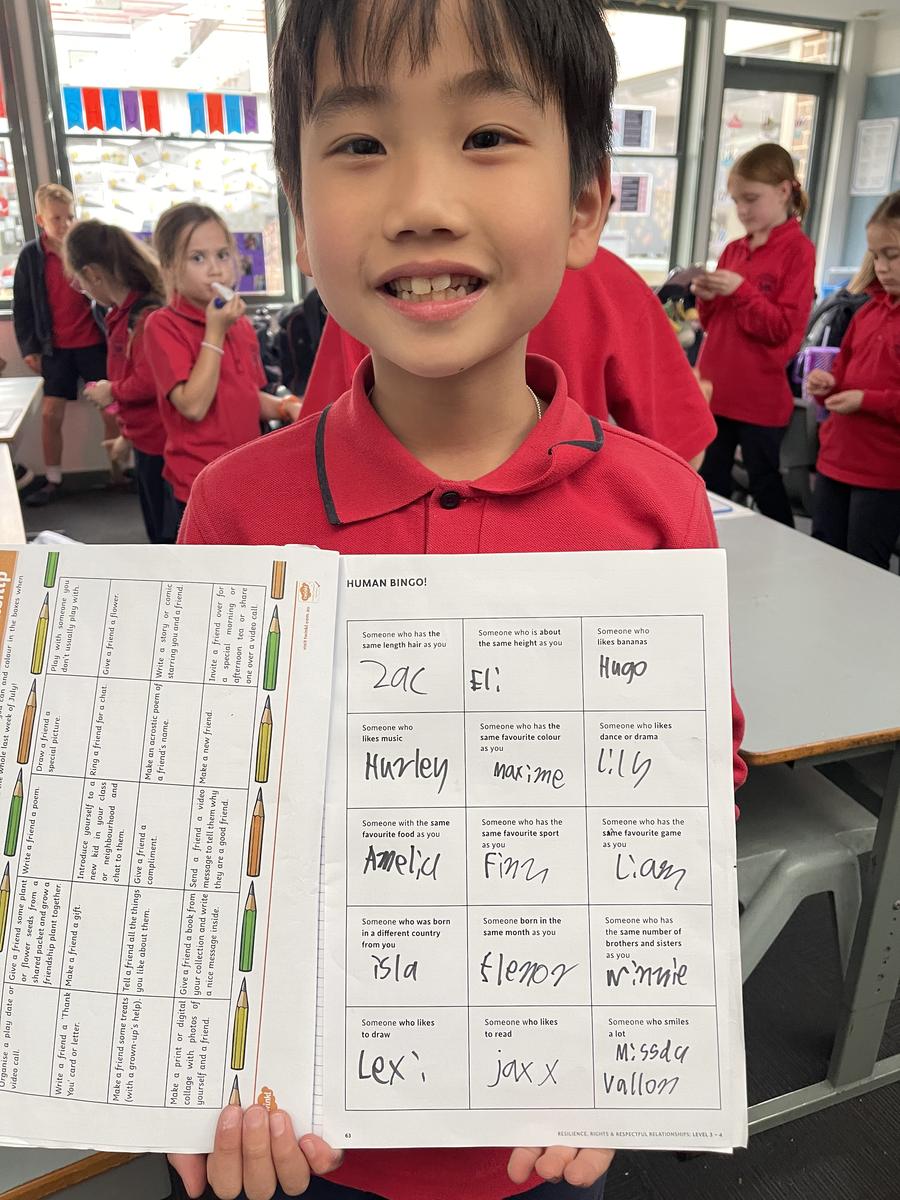 you can and colour in the boxes when
the whole last week of July!
Organise a play date or
video call.
Give a friend some plant
or flower seeds from a
shared packet and grow a
friendship plant together.
Write a friend a poem.
Draw a friend a
special picture.
Play with someone you
don't usually play with.
Write a friend a 'Thank
You' card or letter.
Make a friend a gift.
Introduce yourself to a
new kid in your class
or neighbourhood and
chat to them.
Ring a friend for a chat.
Give a friend a flower.
Make a friend some treats
(with a grown-up's help).
Tell a friend all the things
you like about them.
Give a friend a
compliment.
Make an acrostic poem of
a friend's name.
Write a story or comic
starring you and a friend.
Make a print or digital
collage with photos of
yourself and a friend.
Give a friend a book from
your collection and write
a nice message inside.
Send a friend a video
message to tell them why
they are a good friend.
Make a new friend.
Invite a friend over for
a special morning or
afternoon tea or share
one over a video call.
visit twinkl.com.au
HUMAN BINGO!
Someone who has the
same length hair as you
Zac
Someone who is about
the same height as you
Eli
Someone who
likes bananas
Hugo
Someone who
likes music
Hurley
Someone who has the
same favourite colour
as you
maxime
Someone who likes
dance or drama
Lily
Someone with the same
favourite food as you
Amelia
Someone who has the
same favourite sport
as you
Finn
Someone who has the
same favourite game
as you
Liam
Someone who was born
in a different country
from you
isla
Someone born in the
same month as you
Elenor
Someone who has
the same number of
brothers and sisters
as you
Minnie
Someone who likes
to draw
Lexi
Someone who likes
to read
jaxx
Someone who smiles
a lot
Missda
Vallon
63
RESILIENCE, RIGHTS & RESPECTFUL RELATIONSHIPS: LEVEL 3 – 4